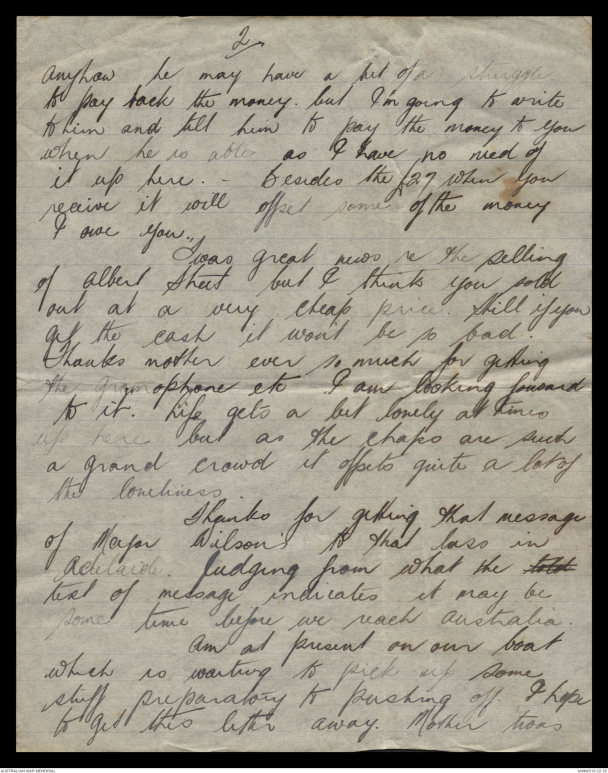 2
Anyhow he may have a bit of a struggle
to pay back the money. but I'm going to write
to him and tell him to pay the money to you
when he is able as I have no need of
it up here. - Besides the £27 when you
receive it will offset some of the money
I owe you.
'Twas great news re the selling
of Albert Street but I think you sold
out at a very cheap price. Still if you
get the cash it won't be so bad.
Thanks mother ever so much for getting
the gramophone etc I am looking forward
to it. Life gets a bit lonely at times
up here but as the chaps are such
a grand crowd it offsets quite a lot of
the loneliness.
Thanks for getting that message
of Major Wilson's to that lass in
Adelaide. Judging from what the
text of message indicates it may be
some time before we reach Australia.
Am at present on our boat
which is waiting to pick up some
stuff preparatory to pushing off. I hope
to get this letter away. Mother twas
AUSTRALIAN WAR MEMORIAL